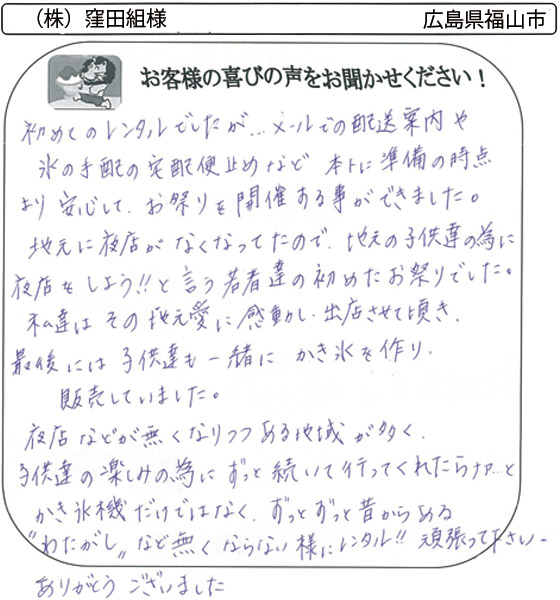 （株）窪田組様 広島県福山市
お客様の喜びの声をお聞かせください！
初めてのレンタルでしたが…メールでの配送案内や
氷の手配の宅配便止めなど 本トに準備の時点
より 安心して、お祭りを開催する事ができました。
地元に夜店がなくなってたので、地元の子供達の為に
夜店をしよう!!と言う若者達の初めたお祭りでした。
私達はその地元愛に感動し、出店させて頂き、
最後には子供達も一緒に かき氷を作り、
販売していました。
夜店などが無くなりつつある地域が多く、
子供達の楽しみの為にずっと続いて行ってくれたらナァ…と
かき氷機だけではなく、ずっとずっと昔からある
“わたがし〟など無くならない様にレンタル!! 頑張って下さい～
ありがとうございました